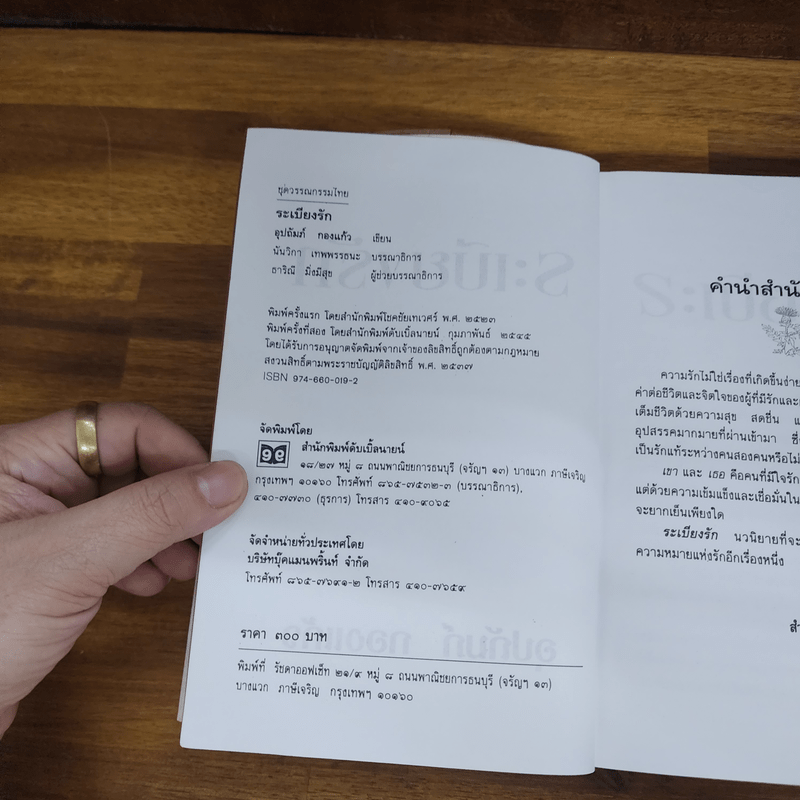 ชุดวรรณกรรมไทย
ระเบียงรัก
อุปถัมภ์ กองแก้ว เขียน
นันวิกา เทพพรรธนะ บรรณาธิการ
ธาริณี มิ่งมีสุข ผู้ช่วยบรรณาธิการ
พิมพ์ครั้งแรก โดยสำนักพิมพ์โชคชัยเทเวศร์ พ.ศ. ๒๕๒๓
พิมพ์ครั้งที่สอง โดยสำนักพิมพ์ดับเบิ้ลนายน์ กุมภาพันธ์ ๒๕๔๕
โดยได้รับการอนุญาตจัดพิมพ์จากเจ้าของลิขสิทธิ์ถูกต้องตามกฎหมาย
สงวนสิทธิ์ตามพระราชบัญญัติลิขสิทธิ์ พ.ศ. ๒๕๓๗
ISBN 974-660-019-2
จัดพิมพ์โดย
สำนักพิมพ์ดับเบิ้ลนายน์
๑๘/๒๗ หมู่ ๘ ถนนพาณิชยการธนบุรี (จรัญฯ ๑๓) บางแวก ภาษีเจริญ
กรุงเทพฯ ๑๐๑๖๐ โทรศัพท์ ๘๖๕-๗๕๓๒-๓ (บรรณาธิการ),
๔๑๐-๗๗๓๐ (ธุรการ) โทรสาร ๔๑๐-๙๐๖๕
จัดจำหน่ายทั่วประเทศโดย
บริษัทบุ๊คแมนพริ้นท์ จำกัด
โทรศัพท์ ๘๖๕-๗๖๙๑-๒ โทรสาร ๔๑๐-๗๖๕๙
ราคา ๓๐๐ บาท
พิมพ์ที่ รัชดาออฟเซ็ท ๒๑/๙ หมู่ ๘ ถนนพาณิชยการธนบุรี (จรัญฯ ๑๓)
บางแวก ภาษีเจริญ กรุงเทพฯ ๑๐๑๖๐
คำนำสำนั
ความรักไม่ใช่เรื่องที่เกิดขึ้นง่าย
ค่าต่อชีวิตและจิตใจของผู้ที่มีรักและ
เต็มชีวิตด้วยความสุข สดชื่น แ
อุปสรรคมากมายที่ผ่านเข้ามา ซึ่
เป็นรักแท้ระหว่างคนสองคนหรือไม่
เขา และ เธอ คือคนที่มีใจรัก
แต่ด้วยความเข้มแข็งและเชื่อมั่นใน
จะยากเย็นเพียงใด
ระเบียงรัก นวนิยายที่จะ
ความหมายแห่งรักอีกเรื่องหนึ่ง
สำ